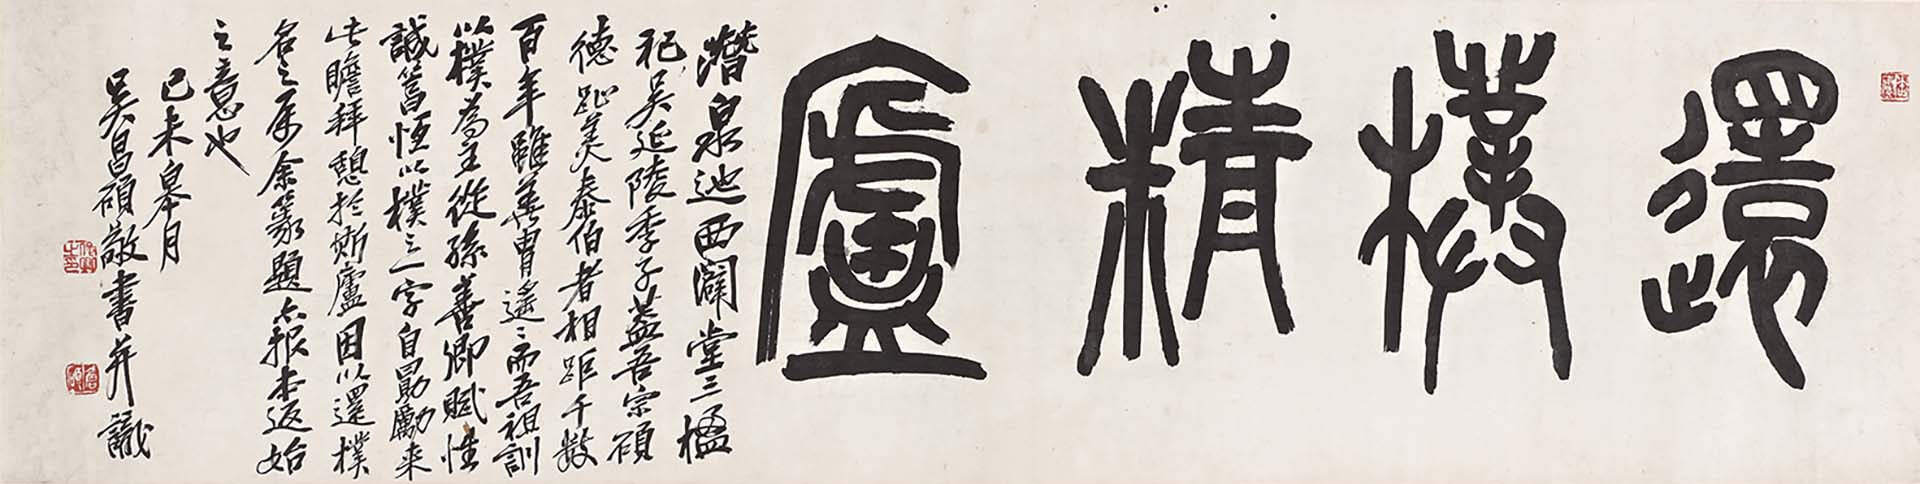 還樸精廬
潛泉迆西闢堂三楹
祀吳延陵季子蓋吾宗碩
德趾美泰伯者相距千數
百年雖華胄遙遙而吾祖訓
以樸為主從孫善卿賦性
誠篤恆以樸之一字自勗勵來
此瞻拜憩於斯廬因以還樸
名之屬余篆題亦報本返始
之意也
己未皋月
吳昌碩敬書并識